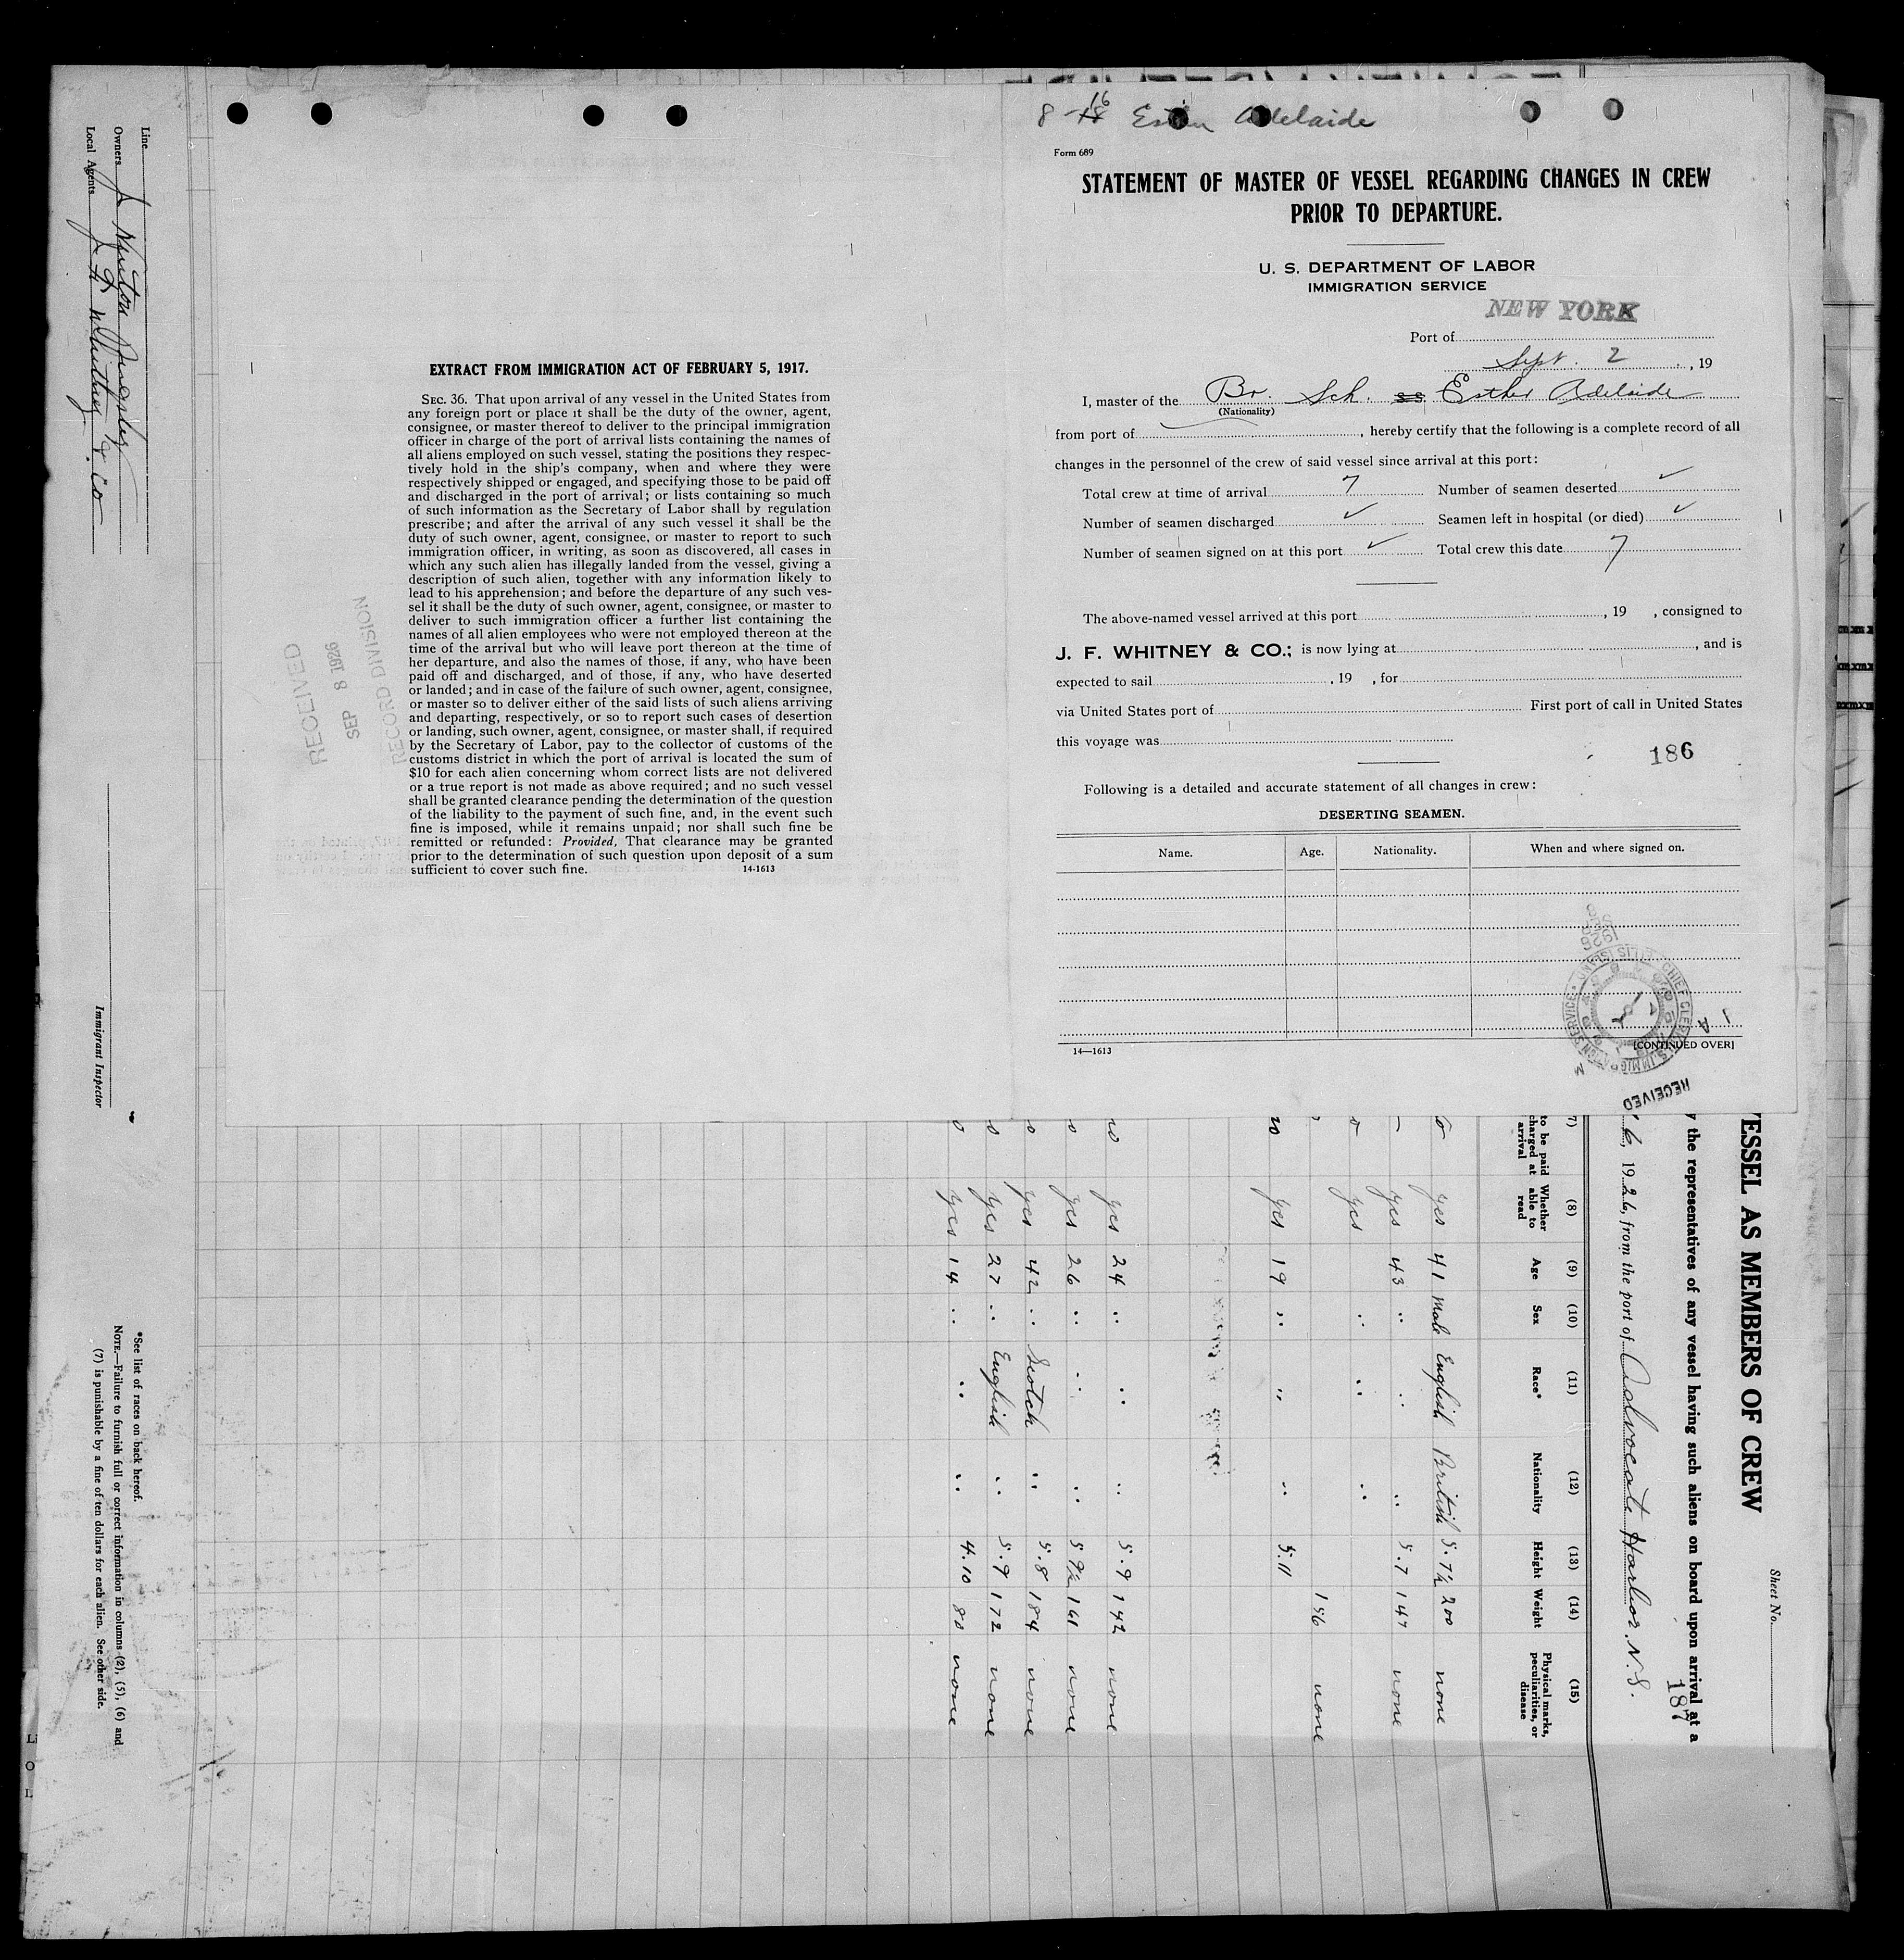 8-16 Esther Adelaide
Form 689
STATEMENT OF MASTER OF VESSEL REGARDING CHANGES IN CREW
PRIOR TO DEPARTURE.
U. S. DEPARTMENT OF LABOR
IMMIGRATION SERVICE
Port of NEW YORK
Sept. 2, 19
I, master of the Br. Sch. SS Esther Adelaide
(Nationality)
from port of, hereby certify that the following is a complete record of all
changes in the personnel of the crew of said vessel since arrival at this port:
Total crew at time of arrival 7 Number of seamen deserted ✓
Number of seamen discharged ✓ Seamen left in hospital (or died) ✓
Number of seamen signed on at this port ✓ Total crew this date 7
The above-named vessel arrived at this port, 19 , consigned to
J. F. WHITNEY & CO.; is now lying at, and is
expected to sail, 19 , for
via United States port of First port of call in United States
this voyage was
186
Following is a detailed and accurate statement of all changes in crew:
DESERTING SEAMEN.
Name. Age. Nationality. When and where signed on.
14—1613
[CONTINUED OVER]
RECEIVED
EXTRACT FROM IMMIGRATION ACT OF FEBRUARY 5, 1917.
SEC. 36. That upon arrival of any vessel in the United States from
any foreign port or place it shall be the duty of the owner, agent,
consignee, or master thereof to deliver to the principal immigration
officer in charge of the port of arrival lists containing the names of
all aliens employed on such vessel, stating the positions they respec-
tively hold in the ship's company, when and where they were
respectively shipped or engaged, and specifying those to be paid off
and discharged in the port of arrival; or lists containing so much
of such information as the Secretary of Labor shall by regulation
prescribe; and after the arrival of any such vessel it shall be the
duty of such owner, agent, consignee, or master to report to such
immigration officer, in writing, as soon as discovered, all cases in
which any such alien has illegally landed from the vessel, giving a
description of such alien, together with any information likely to
lead to his apprehension; and before the departure of any such ves-
sel it shall be the duty of such owner, agent, consignee, or master to
deliver to such immigration officer a further list containing the
names of all alien employees who were not employed thereon at the
time of the arrival but who will leave port thereon at the time of
her departure, and also the names of those, if any, who have been
paid off and discharged, and of those, if any, who have deserted
or landed; and in case of the failure of such owner, agent, consignee,
or master so to deliver either of the said lists of such aliens arriving
and departing, respectively, or so to report such cases of desertion
or landing, such owner, agent, consignee, or master shall, if required
by the Secretary of Labor, pay to the collector of customs of the
customs district in which the port of arrival is located the sum of
$10 for each alien concerning whom correct lists are not delivered
or a true report is not made as above required; and no such vessel
shall be granted clearance pending the determination of the question
of the liability to the payment of such fine, and, in the event such
fine is imposed, while it remains unpaid; nor shall such fine be
remitted or refunded: Provided, That clearance may be granted
prior to the determination of such question upon deposit of a sum
sufficient to cover such fine.
14-1613
RECEIVED
SEP 8 1926
RECORD DIVISION
Sheet No.
ESSEL AS MEMBERS OF CREW
the representatives of any vessel having such aliens on board upon arrival at a
187
6, 1926, from the port of Advocate Harbor N.S.
(8) (9) (10) (11) (12) (13) (14) (15)
to be paid
charged at
arrival
Whether
able to
read
Age Sex Race* Nationality Height Weight
Physical marks,
peculiarities, or
disease
yes 41 Male English British 5.7½ 200 none
yes 43 " " " 5.7 147 none
yes " " "
156 none
yes 19 " " " 5.11
yes 24 " " " 5.9 142 none
yes 26 " " " 5 9½ 161 none
yes 42 " Scotch " 5.8 184 none
yes 27 " English " 5.9 172 none
yes 14 " " " 4.10 80 none
Line
Owners
Local Agents J F Whitney & Co
Immigrant Inspector
*See list of races on back hereof.
NOTE.—Failure to furnish full or correct information in columns (2), (5), (6) and
(7) is punishable by a fine of ten dollars for each alien. See other side.